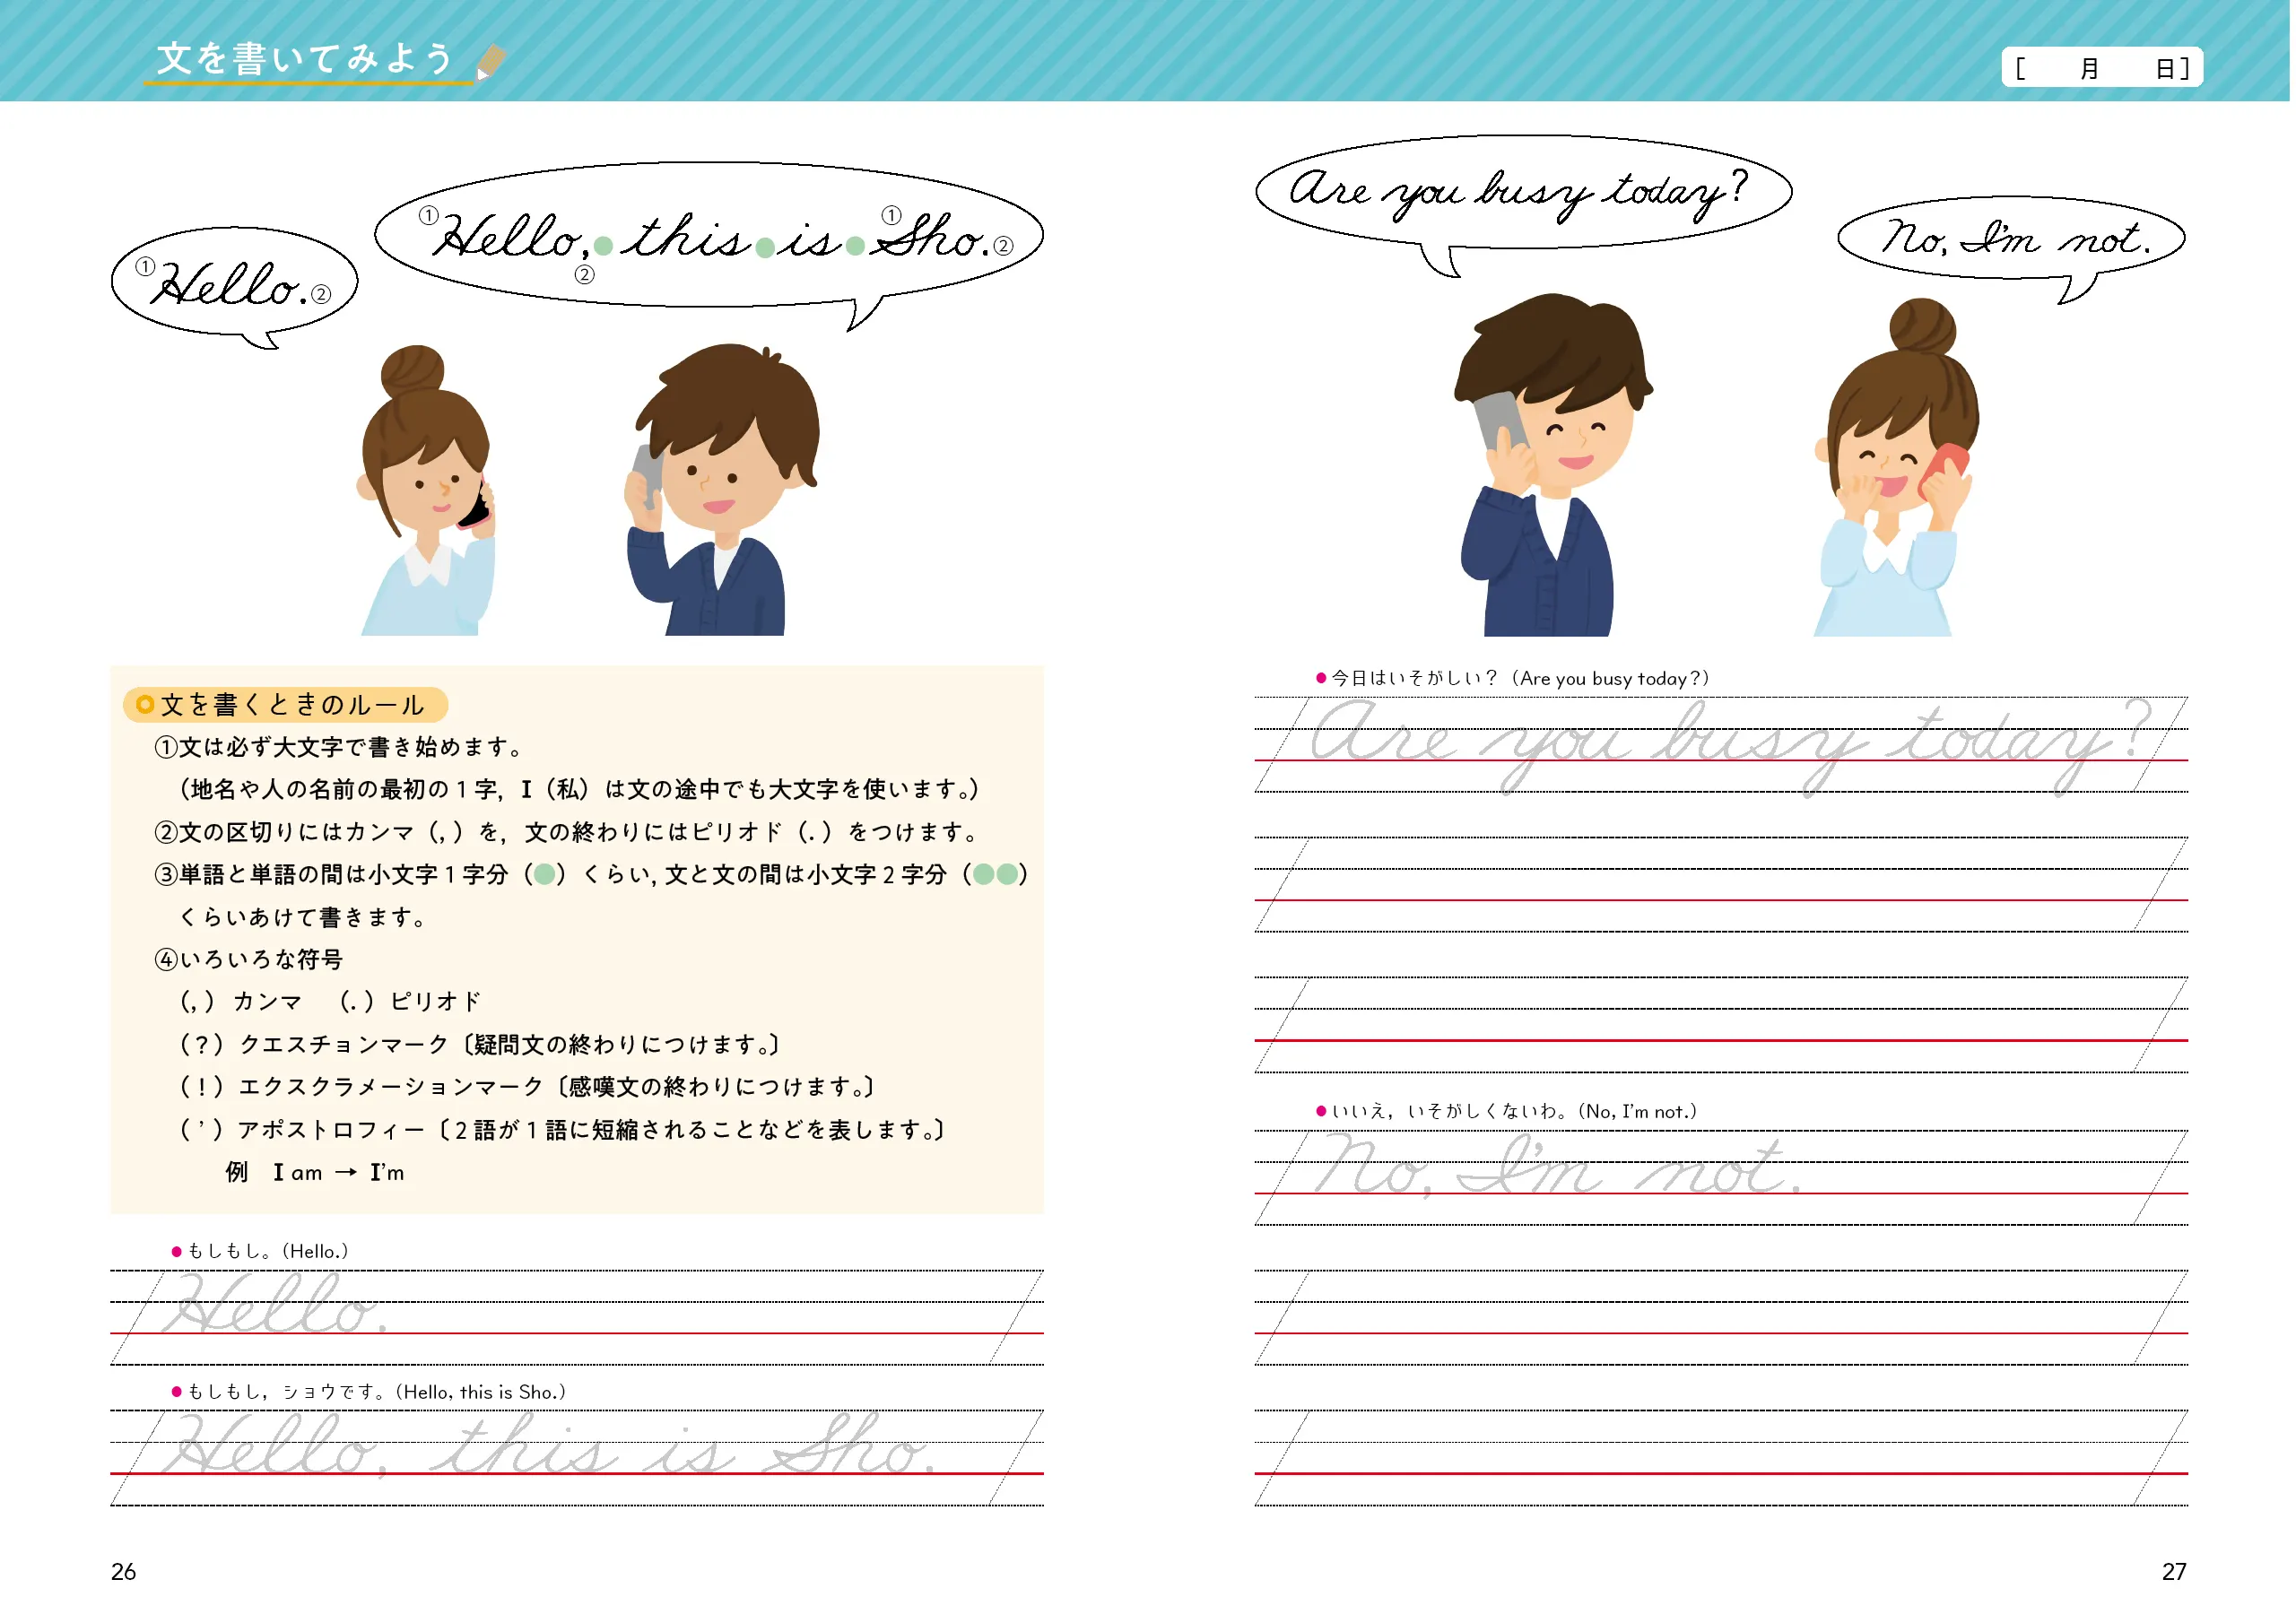 文を書いてみよう
[　月　日]
①Hello.②
①Hello, this is ①Sho.②
②
文を書くときのルール
①文は必ず大文字で書き始めます。
（地名や人の名前の最初の1字，I（私）は文の途中でも大文字を使います。）
②文の区切りにはカンマ（,）を，文の終わりにはピリオド（.）をつけます。
③単語と単語の間は小文字1字分（●）くらい,文と文の間は小文字2字分（●●）
くらいあけて書きます。
④いろいろな符号
（,）カンマ　（.）ピリオド
（?）クエスチョンマーク〔疑問文の終わりにつけます。〕
（!）エクスクラメーションマーク〔感嘆文の終わりにつけます。〕
（’）アポストロフィー〔2語が1語に短縮されることなどを表します。〕
例　I am → I’m
●もしもし。（Hello.）
Hello.
●もしもし，ショウです。（Hello, this is Sho.）
Hello, this is Sho.
26
Are you busy today?
No, I'm not.
●今日はいそがしい？（Are you busy today?）
Are you busy today?
●いいえ，いそがしくないわ。（No, I’m not.）
No, I'm not.
27